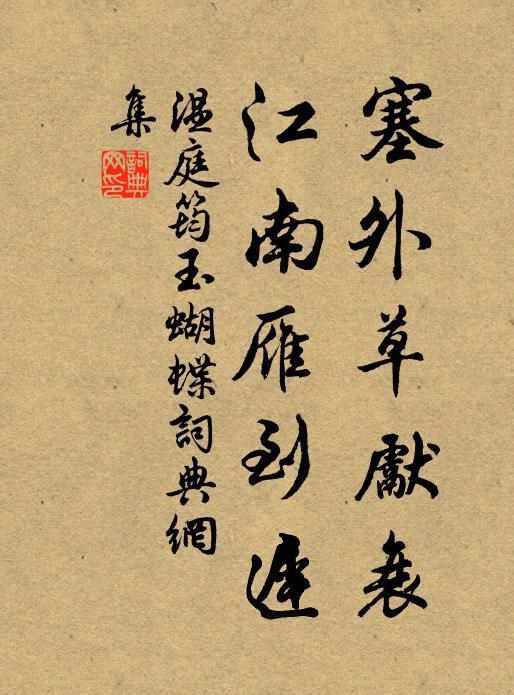 塞外草獻衰
江南雁到遲
温庭筠玉蝴蝶詞典網
集
詞典网印